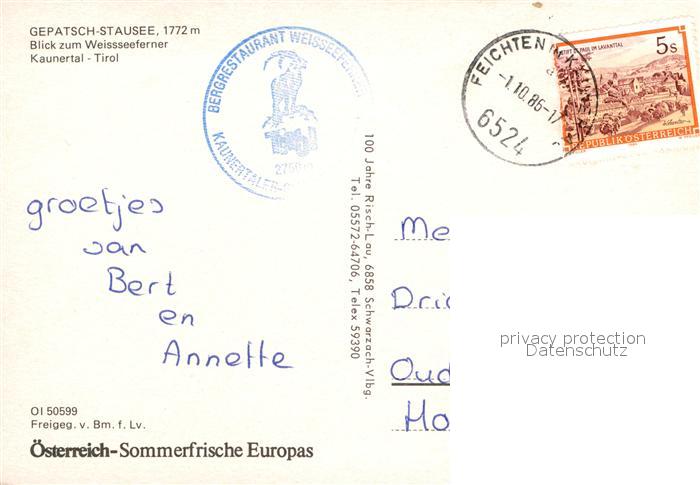 GEPATSCH-STAUSEE, 1772 m
Blick zum Weissseeferner
Kaunertal - Tirol
BERGRESTAURANT WEISSEEFERNER
KAUNERTALER-
FEICHTEN
-1.10.86-17
6524
STIFT ST. PAUL IM LAVANTTAL
5s
REPUBLIK ÖSTERREICH
groetjes
van
Bert
en
Annette
100 Jahre Risch-Lau, 6858 Schwarzach-Vlbg.
Tel. 05572-64706, Telex 59390
Me
Dri
Oud
Ho
privacy protection
Datenschutz
OI 50599
Freigeg. v. Bm. f. Lv.
Österreich-Sommerfrische Europas